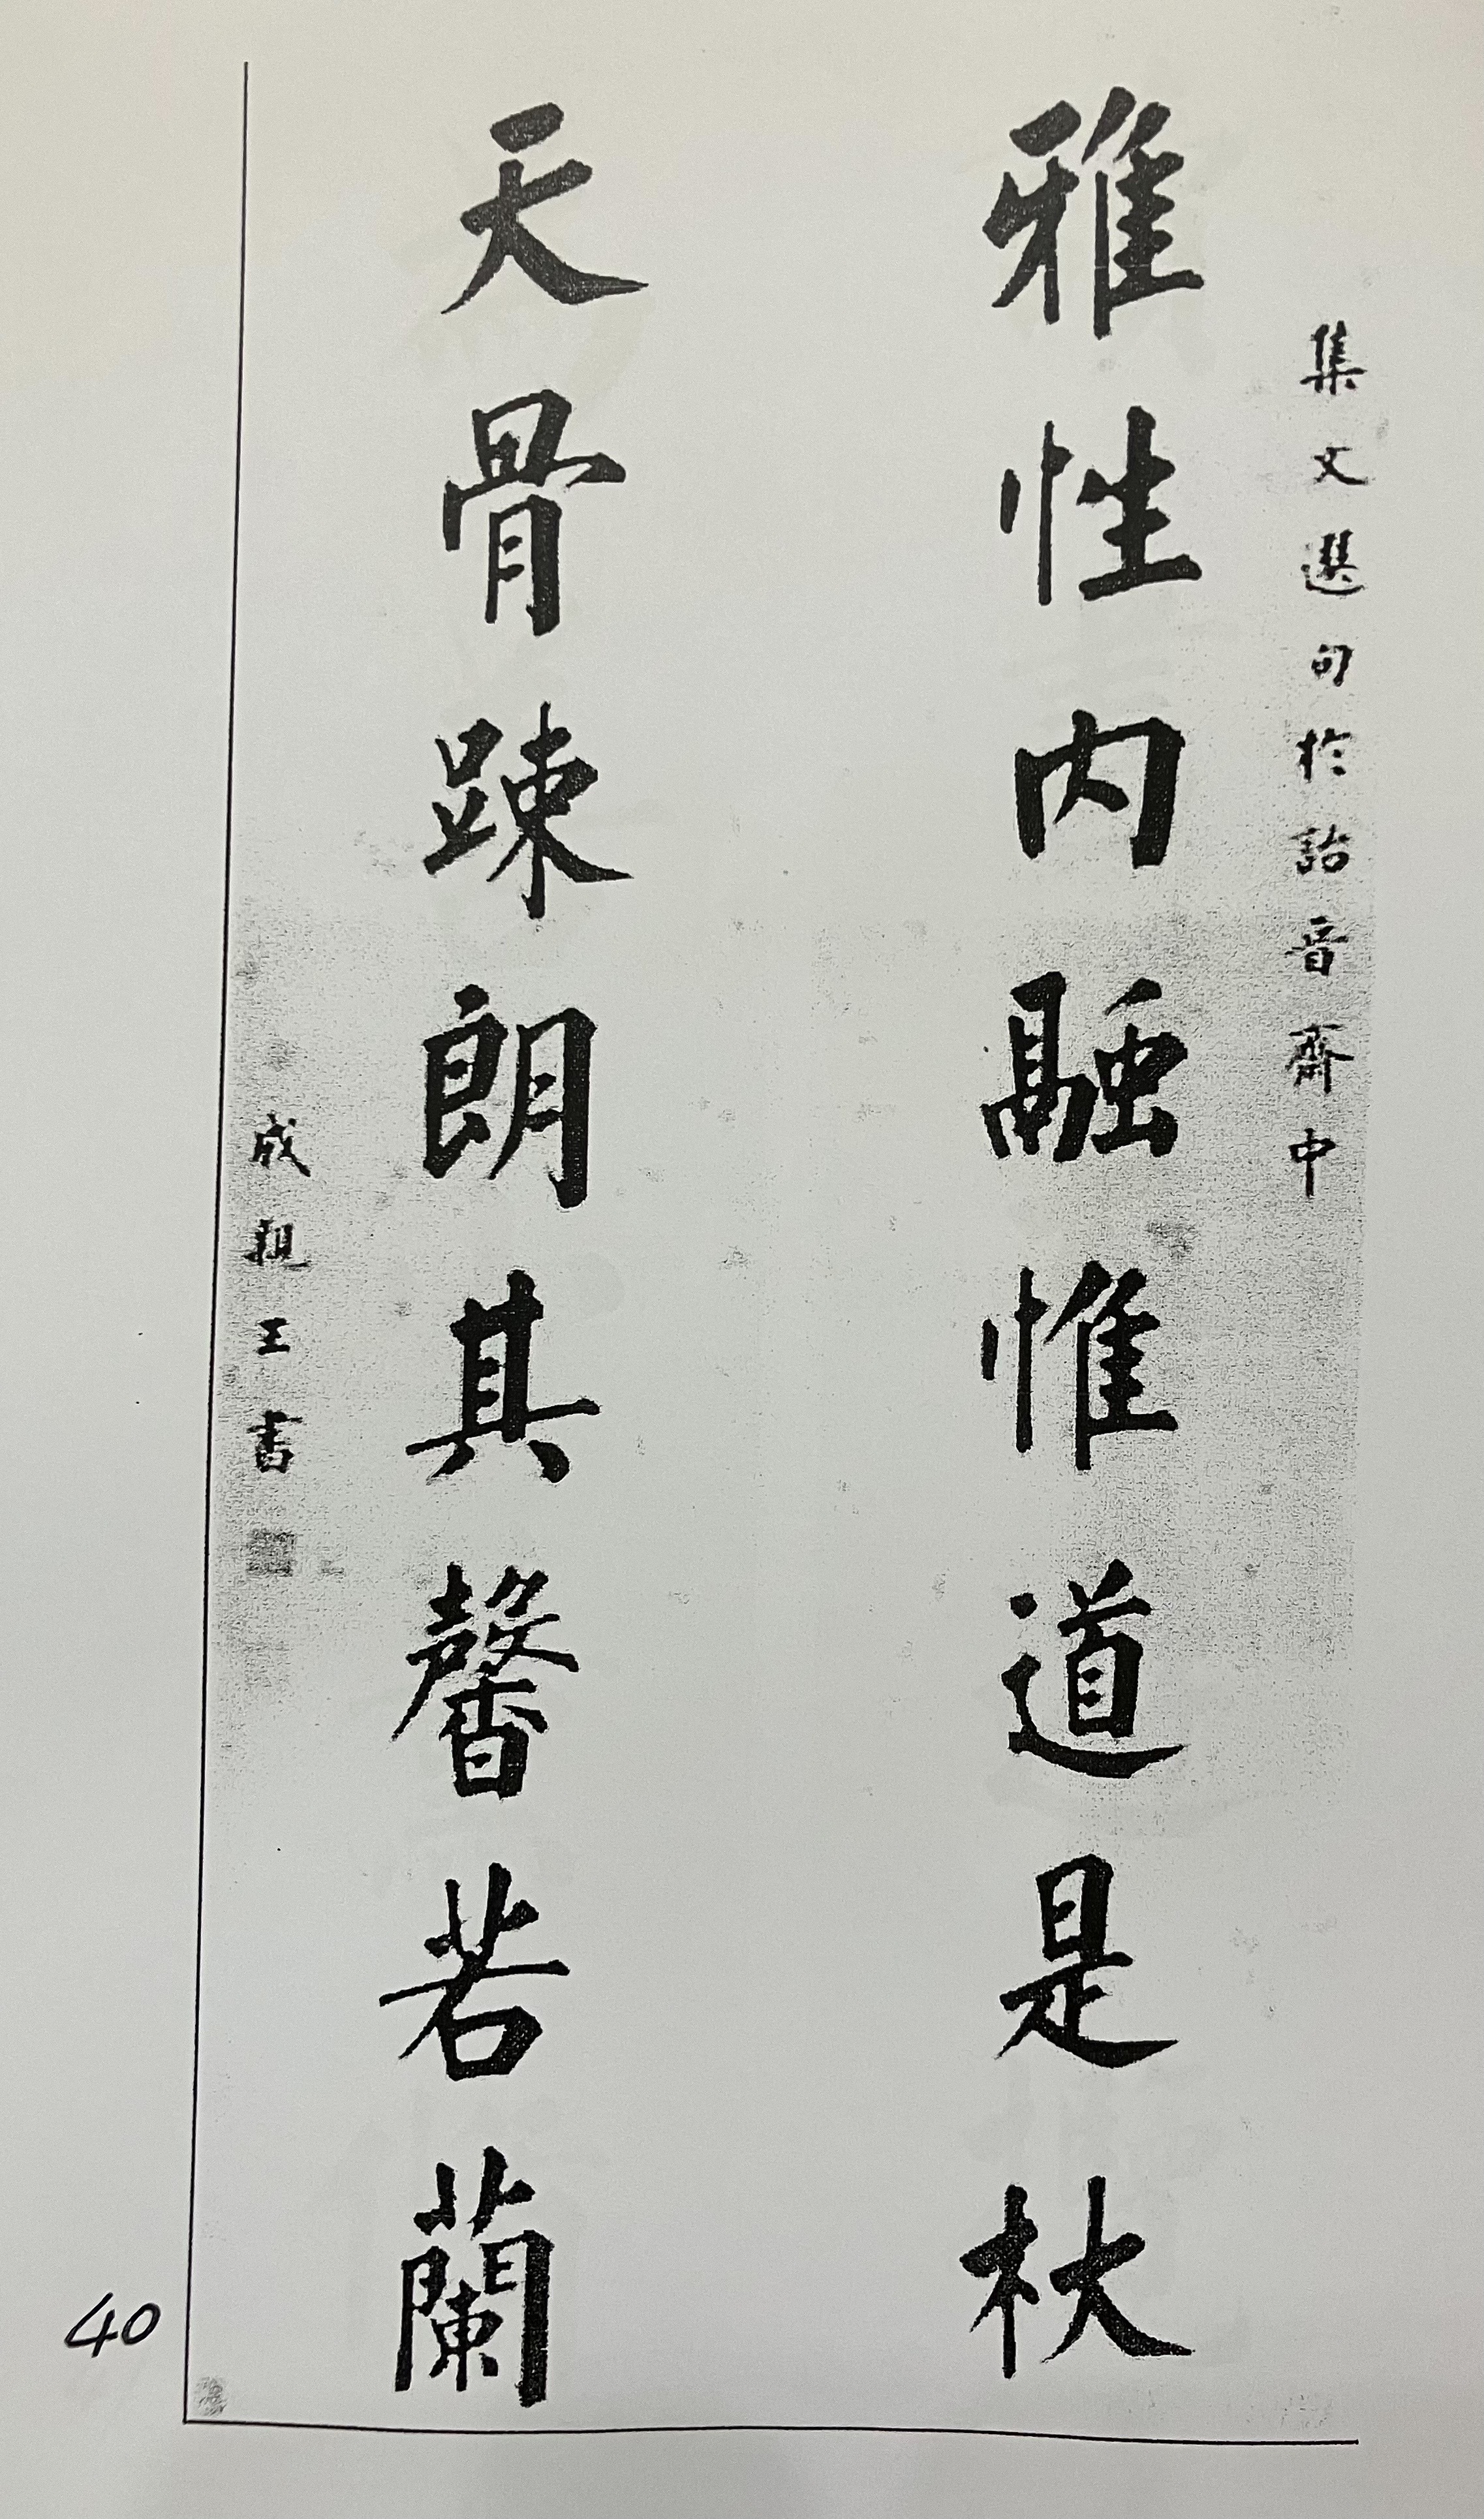 集文選句於詒音齋中
雅性內融惟道是杖
天骨踈朗其馨若蘭
成親王書
40